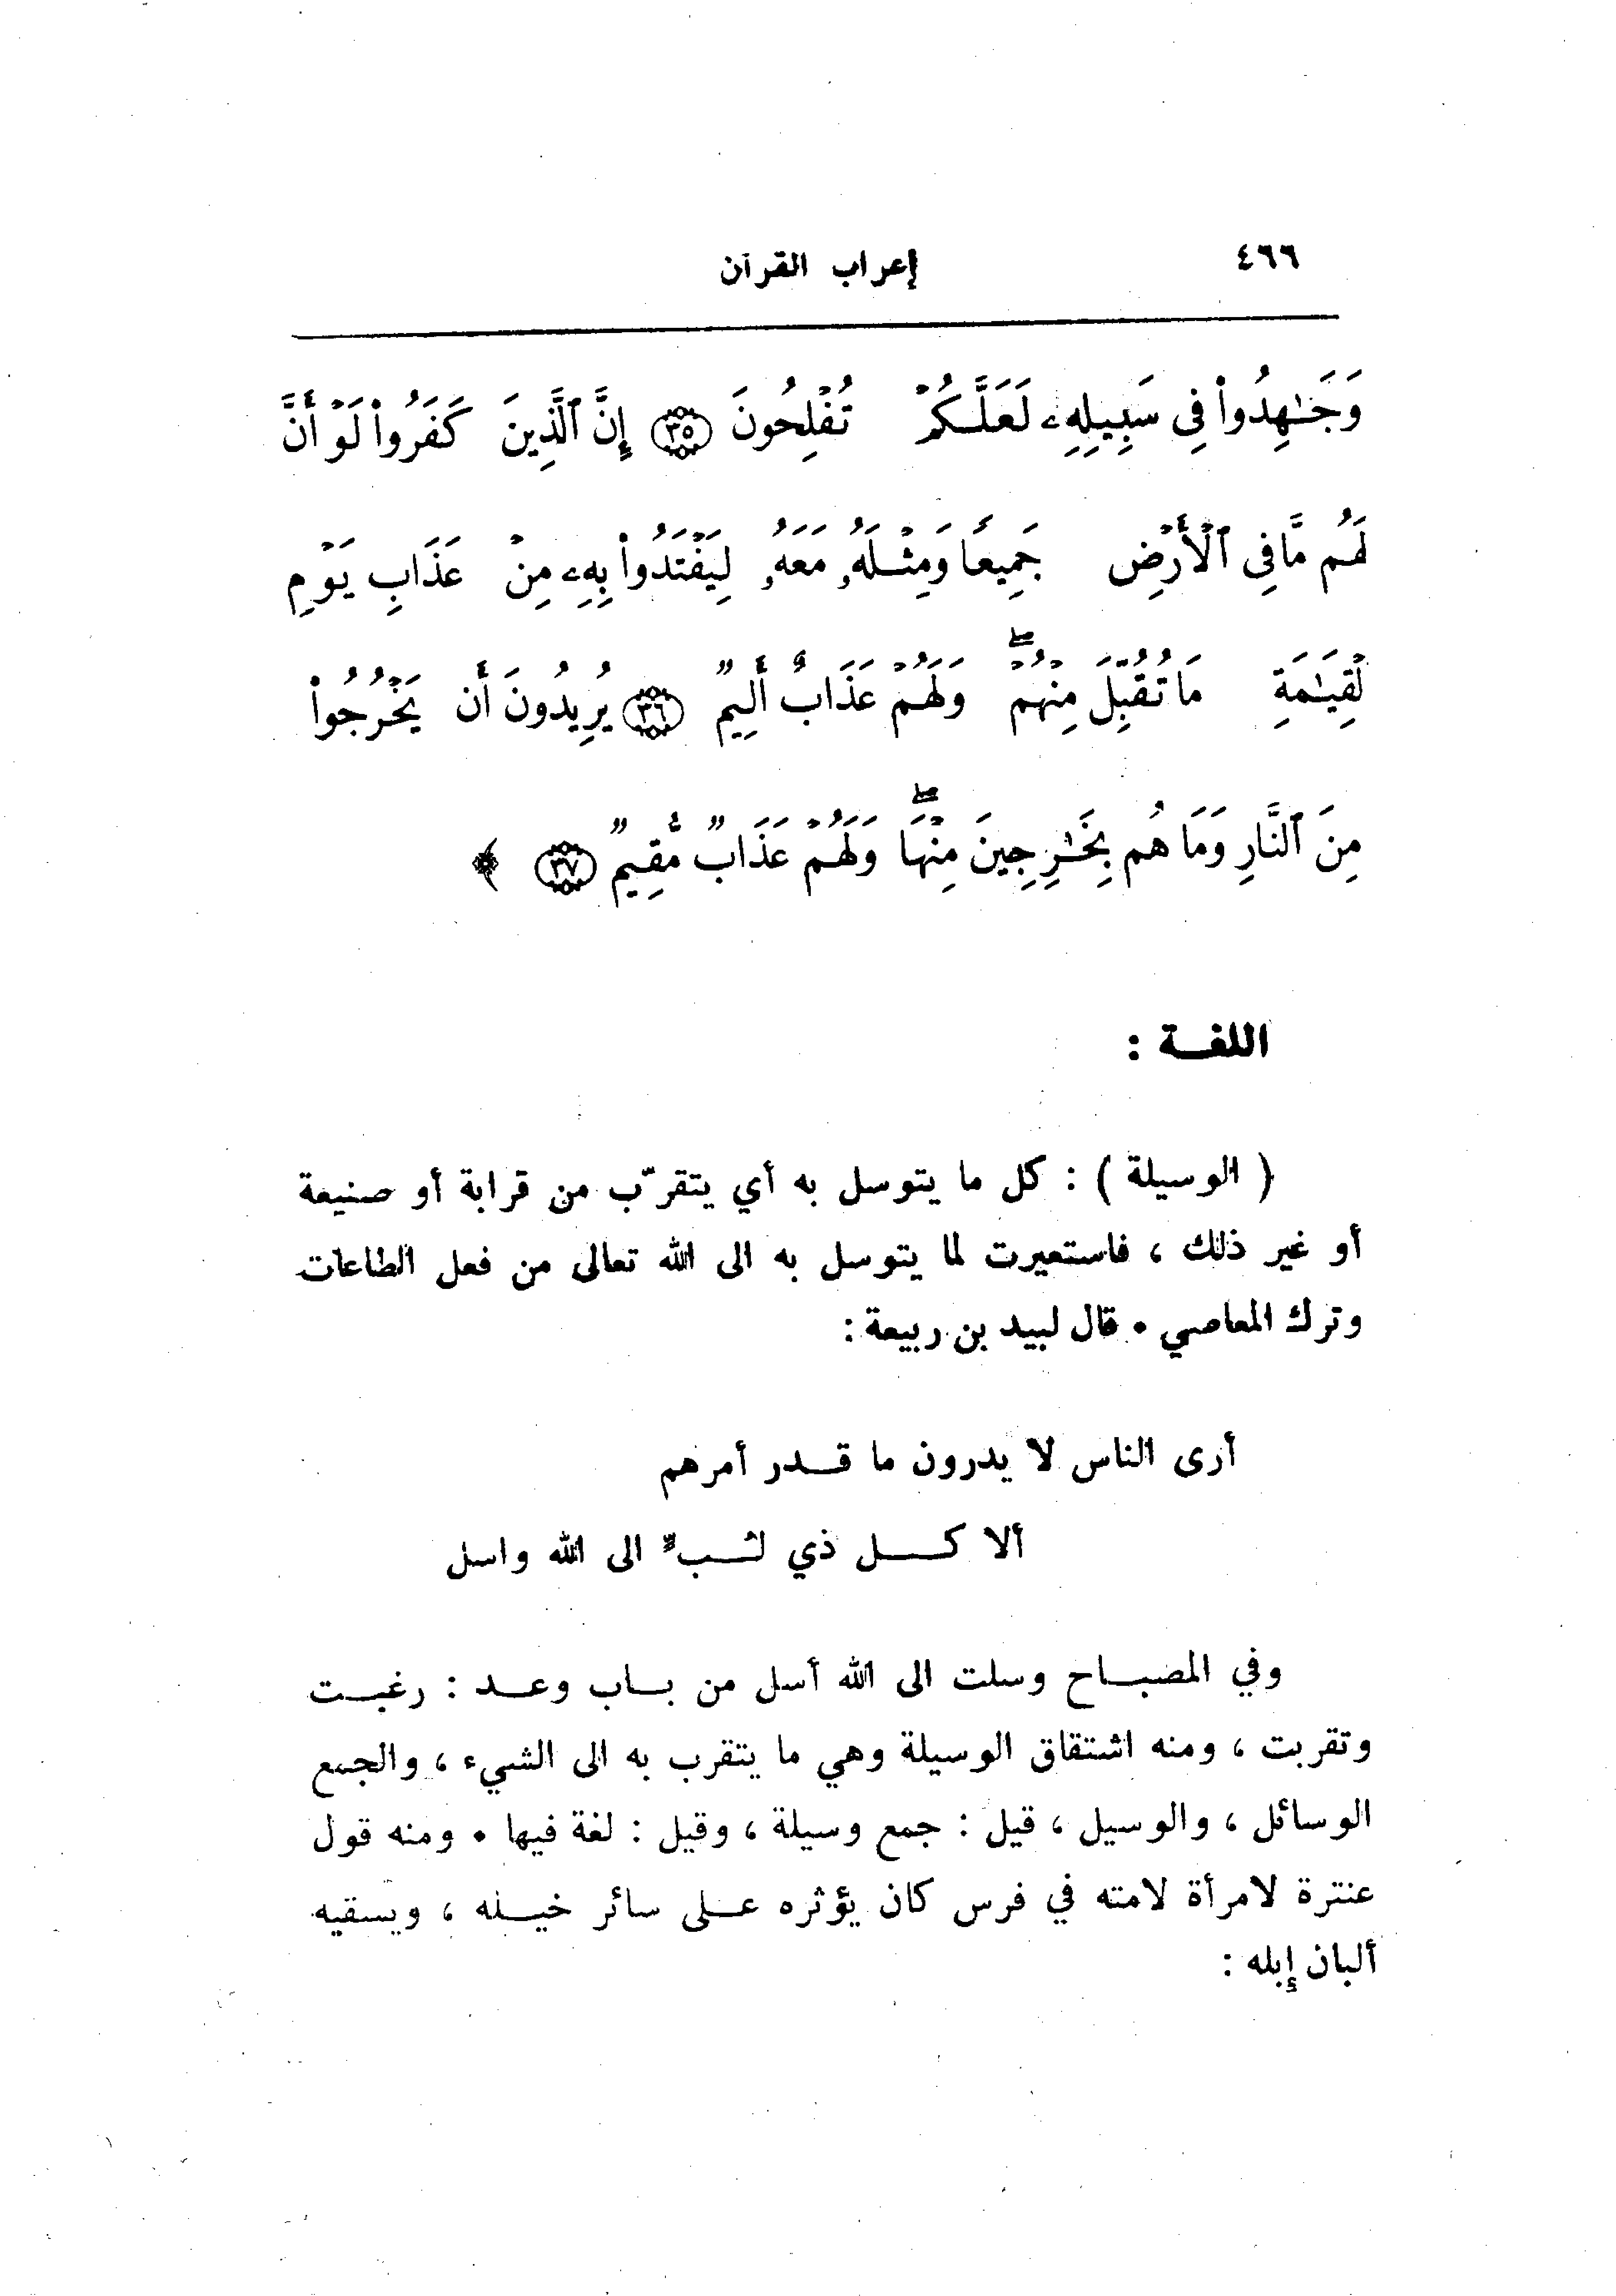 ٤٦٦
إعراب القرآن
وَجَـٰهِدُوا۟ فِى سَبِيلِهِۦ لَعَلَّكُمْ تُفْلِحُونَ ٣٥ إِنَّ ٱلَّذِينَ كَفَرُوا۟ لَوْ أَنَّ
لَهُم مَّا فِى ٱلْأَرْضِ جَمِيعًا وَمِثْلَهُۥ مَعَهُۥ لِيَفْتَدُوا۟ بِهِۦ مِنْ عَذَابِ يَوْمِ
لْقِيَـٰمَةِ مَا تُقُبِّلَ مِنْهُمْ ۖ وَلَهُمْ عَذَابٌ أَلِيمٌ ٣٦ يُرِيدُونَ أَن يَخْرُجُوا۟
مِنَ ٱلنَّارِ وَمَا هُم بِخَـٰرِجِينَ مِنْهَا ۖ وَلَهُمْ عَذَابٌ مُّقِيمٌ ٣٧ ﴾
اللغـة :
( الوسيلة ) : كل ما يتوسل به أي يتقرّب من قرابة أو صنيعة
أو غير ذلك ، فاستعيرت لما يتوسل به الى الله تعالى من فعل الطاعات
وترك المعاصي • قال لبيد بن ربيعة :
أرى الناس لا يدرون ما قـدر أمرهم
ألا كـل ذي لـبٍّ الى الله واسل
وفي المصبـاح وسلت الى الله أسل من بـاب وعـد : رغبـت
وتقربت ، ومنه اشتقاق الوسيلة وهي ما يتقرب به الى الشيء ، والجمع
الوسائل ، والوسيل ، قيل : جمع وسيلة ، وقيل : لغة فيها • ومنه قول
عنترة لامرأة لامته في فرس كان يؤثره عـلى سائر خيـله ، ويسقيه
ألبان إبله :